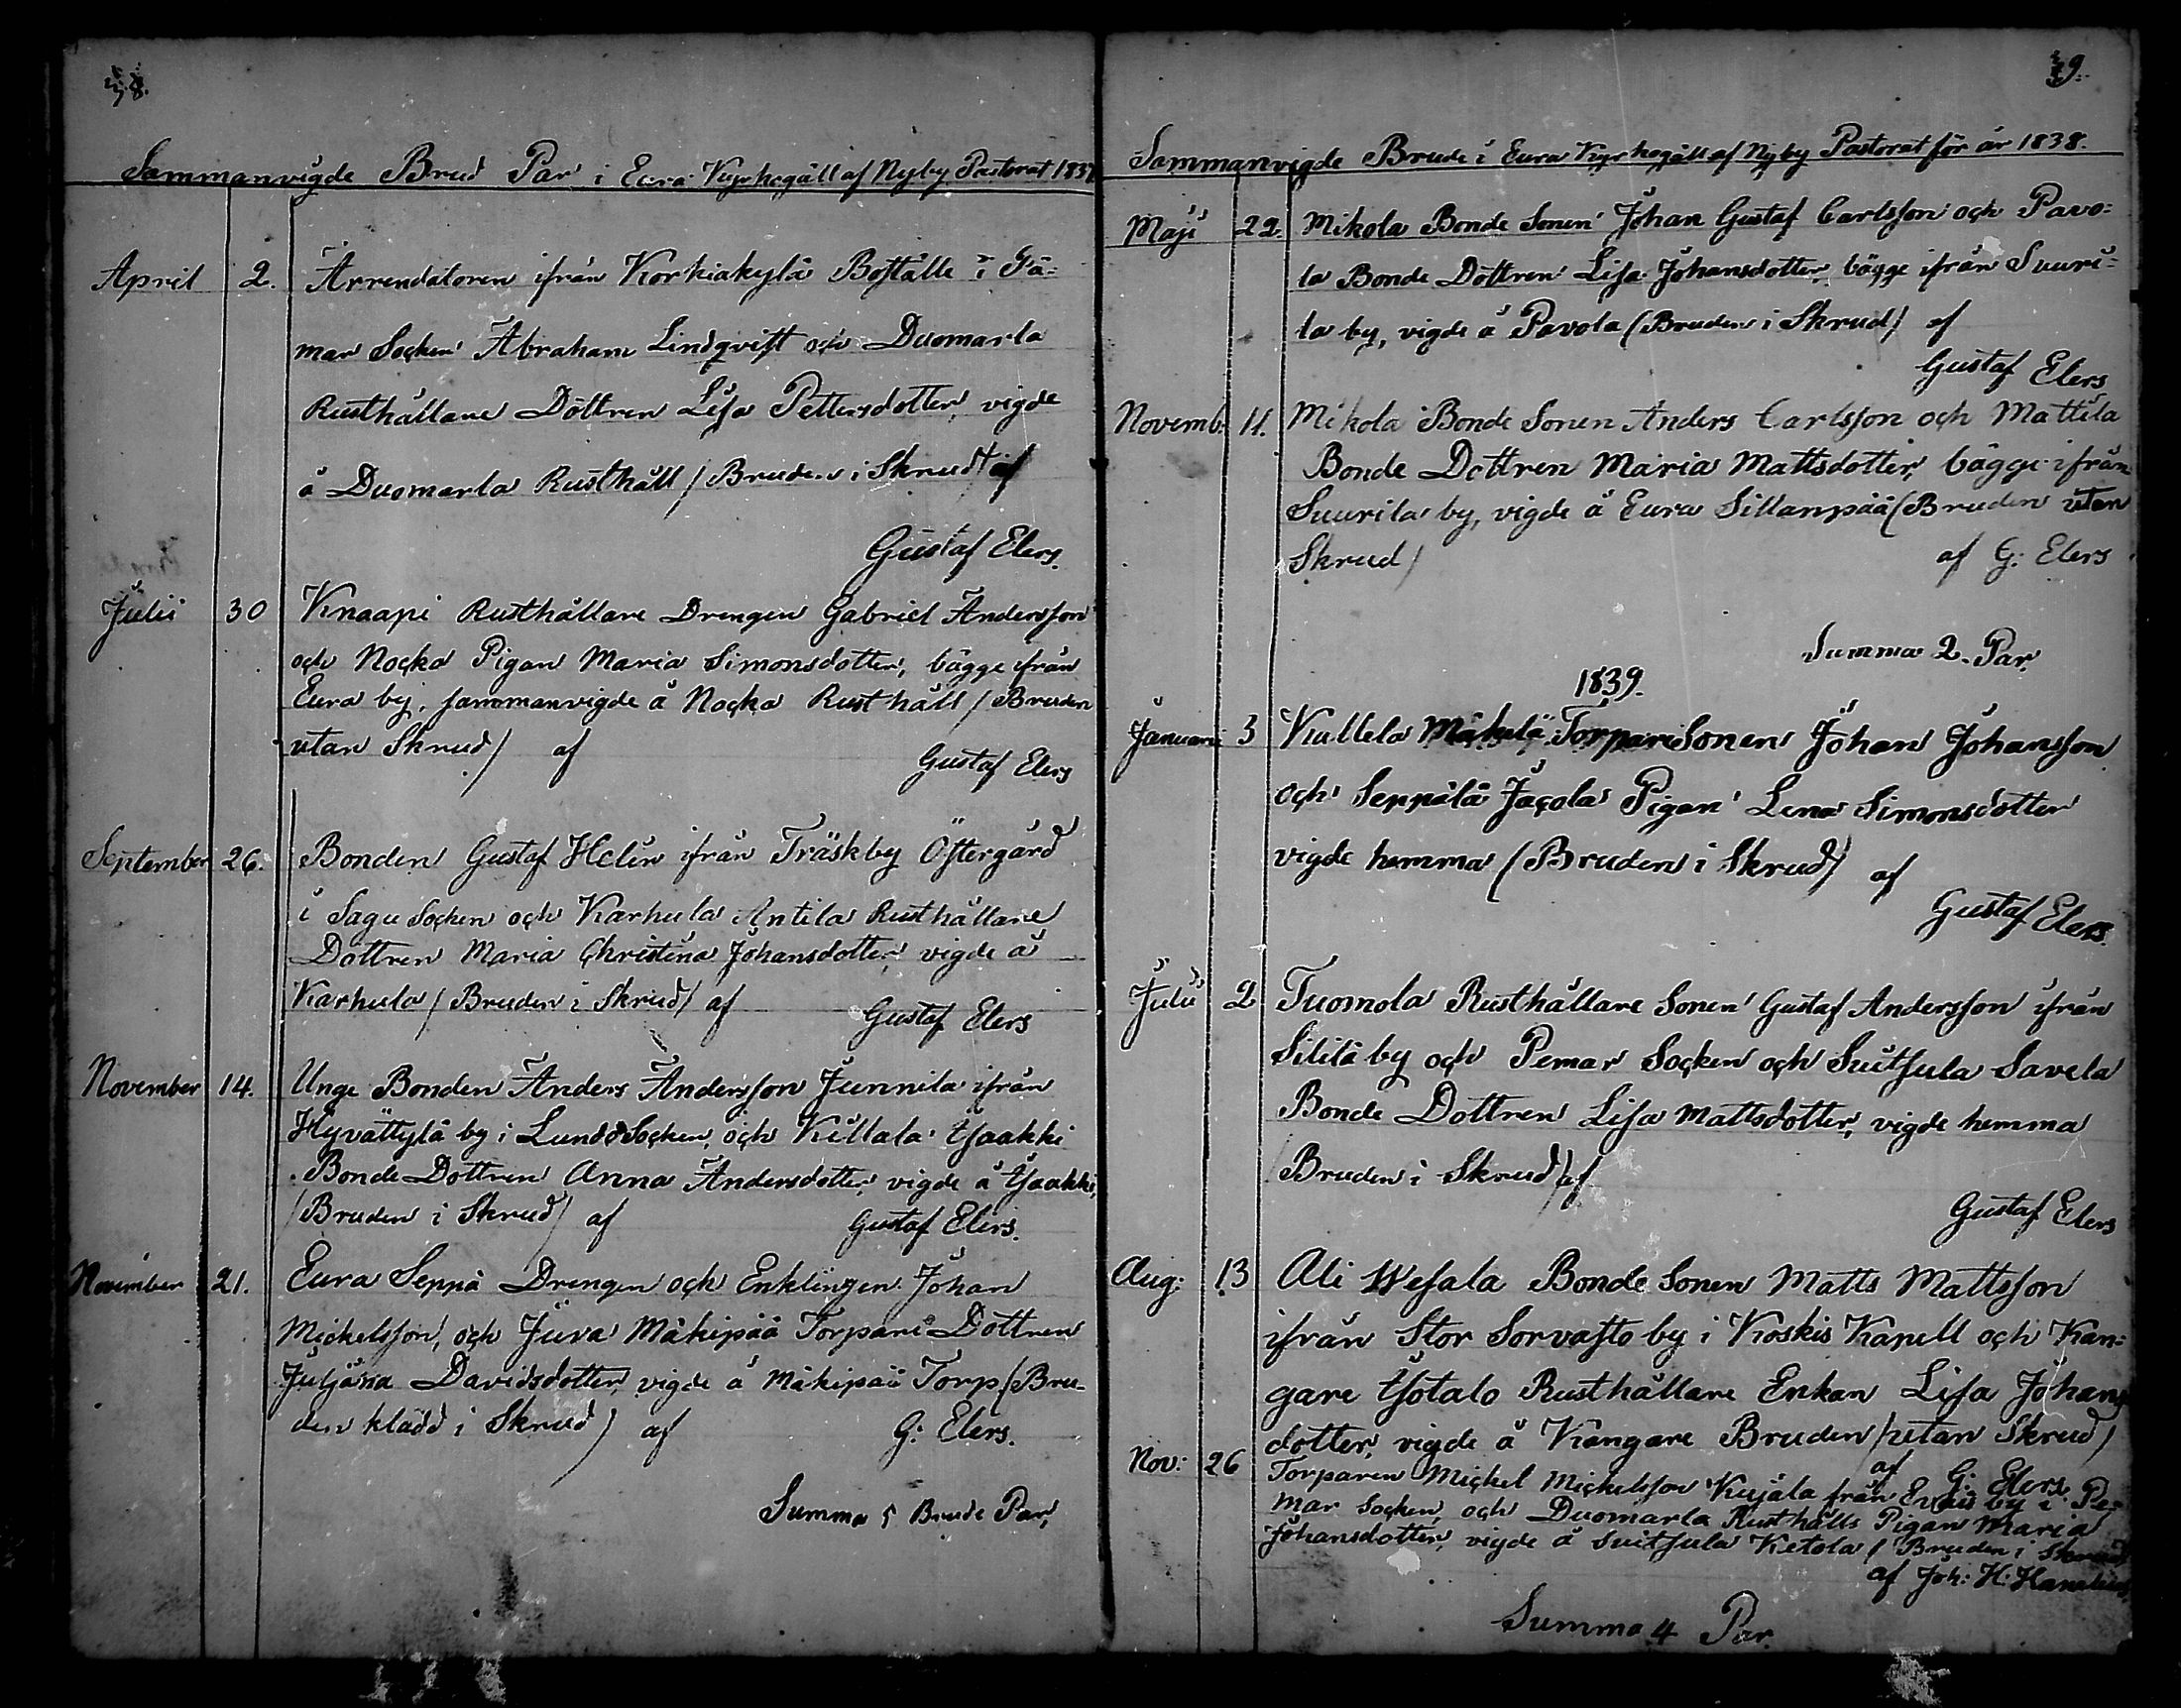 38.
Sammanvigde Brud Par i Eura Kyrkogäll af Nyby Pastorat 1837
April 2. Arrendatoren ifrån Korkiakylä Boställe i Gä=
mar Socken Abraham Lindqvist och Duomarla
Rusthållare Dottren Lisa Pettersdotter, vigde
å Duomarla Rusthåll / Bruden i Skrud / af
Gustaf Elers.
Julii 30 Knaapi Rusthållare Drengen Gabriel Andersson
och Nocka Pigan Maria Simonsdotter, bägge ifrån
Eura by, sammanvigde å Nocka Rusthåll / Bruden
utan Skrud / af Gustaf Elers
September 26. Bonden Gustaf Helen ifrån Träskby Östergård
i Sagu Socken och Karhula Antila Rusthållare
Dottren Maria Christina Johansdotter, vigde å
Karhula / Bruden i Skrud / af Gustaf Elers
November 14. Unge Bonden Anders Andersson Junnila ifrån
Hyvättylä by i Lundo Socken, och Killala Isaakki
Bonde Dottren Anna Andersdotter, vigde å Isaakki,
/ Bruden i Skrud / af Gustaf Elers.
November 21. Eura Seppä Drengen och Enklingen Johan
Mickelsson, och Juva Mäkipää Torpare Dottren
Juljana Davidsdotter, vigde å Mäkipää Torp / Bru-
den klädd i Skrud ) af G: Elers.
Summa 5 Brude Par,
39.
Sammanvigde Brude i Eura Kyrkogäll af Nyby Pastorat för år 1838.
Maji 22. Mikola Bonde Sonen Johan Gustaf Carlsson och Pavo=
la Bonde Dottren Lisa Johansdotter, bägge ifrån Suuri=
la by, vigde å Pavola ( Bruden i Skrud / af
Gustaf Elers
Novemb: 11. Mikola Bonde Sonen Anders Carlsson och Mattila
Bonde Dottren Maria Mattsdotter, bägge ifrån
Suurila by, vigde å Eura Sillanpää ( Bruden utan
Skrud / af G: Elers
Summa 2. Par.
1839.
Januarii 3 Kullela Mäkelä Torpare Sonen Johan Johansson
och Seppälä Jacola Pigan Lena Simonsdotter
vigde hemma ( Bruden i Skrud ) af
Gustaf Elers.
Julii 2 Tuomola Rusthållare Sonen Gustaf Andersson ifrån
Sililä by och Pemar Socken och Suitsula Savela
Bonde Dottren Lisa Mattsdotter, vigde hemma
/ Bruden i Skrud / af
Gustaf Elers
Aug: 13 Ali Wesala Bonde Sonen Matts Mattsson
ifrån Stor Sorvasto by i Koskis Kapell och Kan=
gare Isotalo Rusthållare Enkan Lisa Johans
dotter, vigde å Kangare Bruden / utan Skrud )
af G: Elers
Nov: 26 Torparen Mickel Mickelsson Kujala från by i Pe=
mar Socken, och Duomarla Rusthålls Pigan Maria
Johansdotter, vigde å Suitsula Ketola / Bruden i Skrud
af Joh: H:
Summa 4 Par.